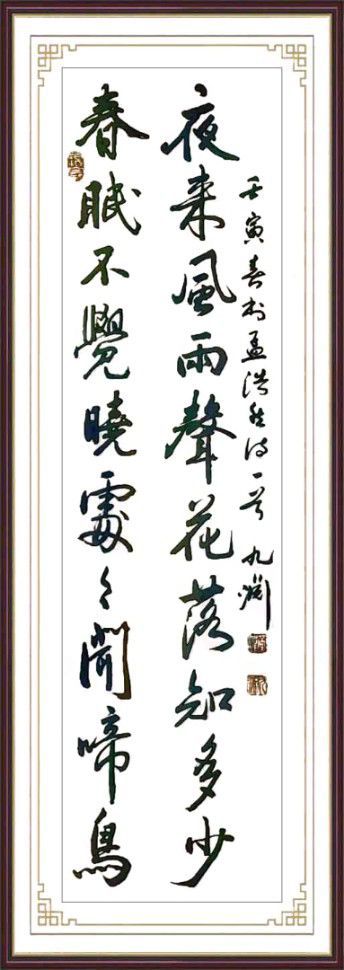 春眠不覺曉處々聞啼鳥
夜来風雨聲花落知多少
壬寅春孟浩然诗一首 九